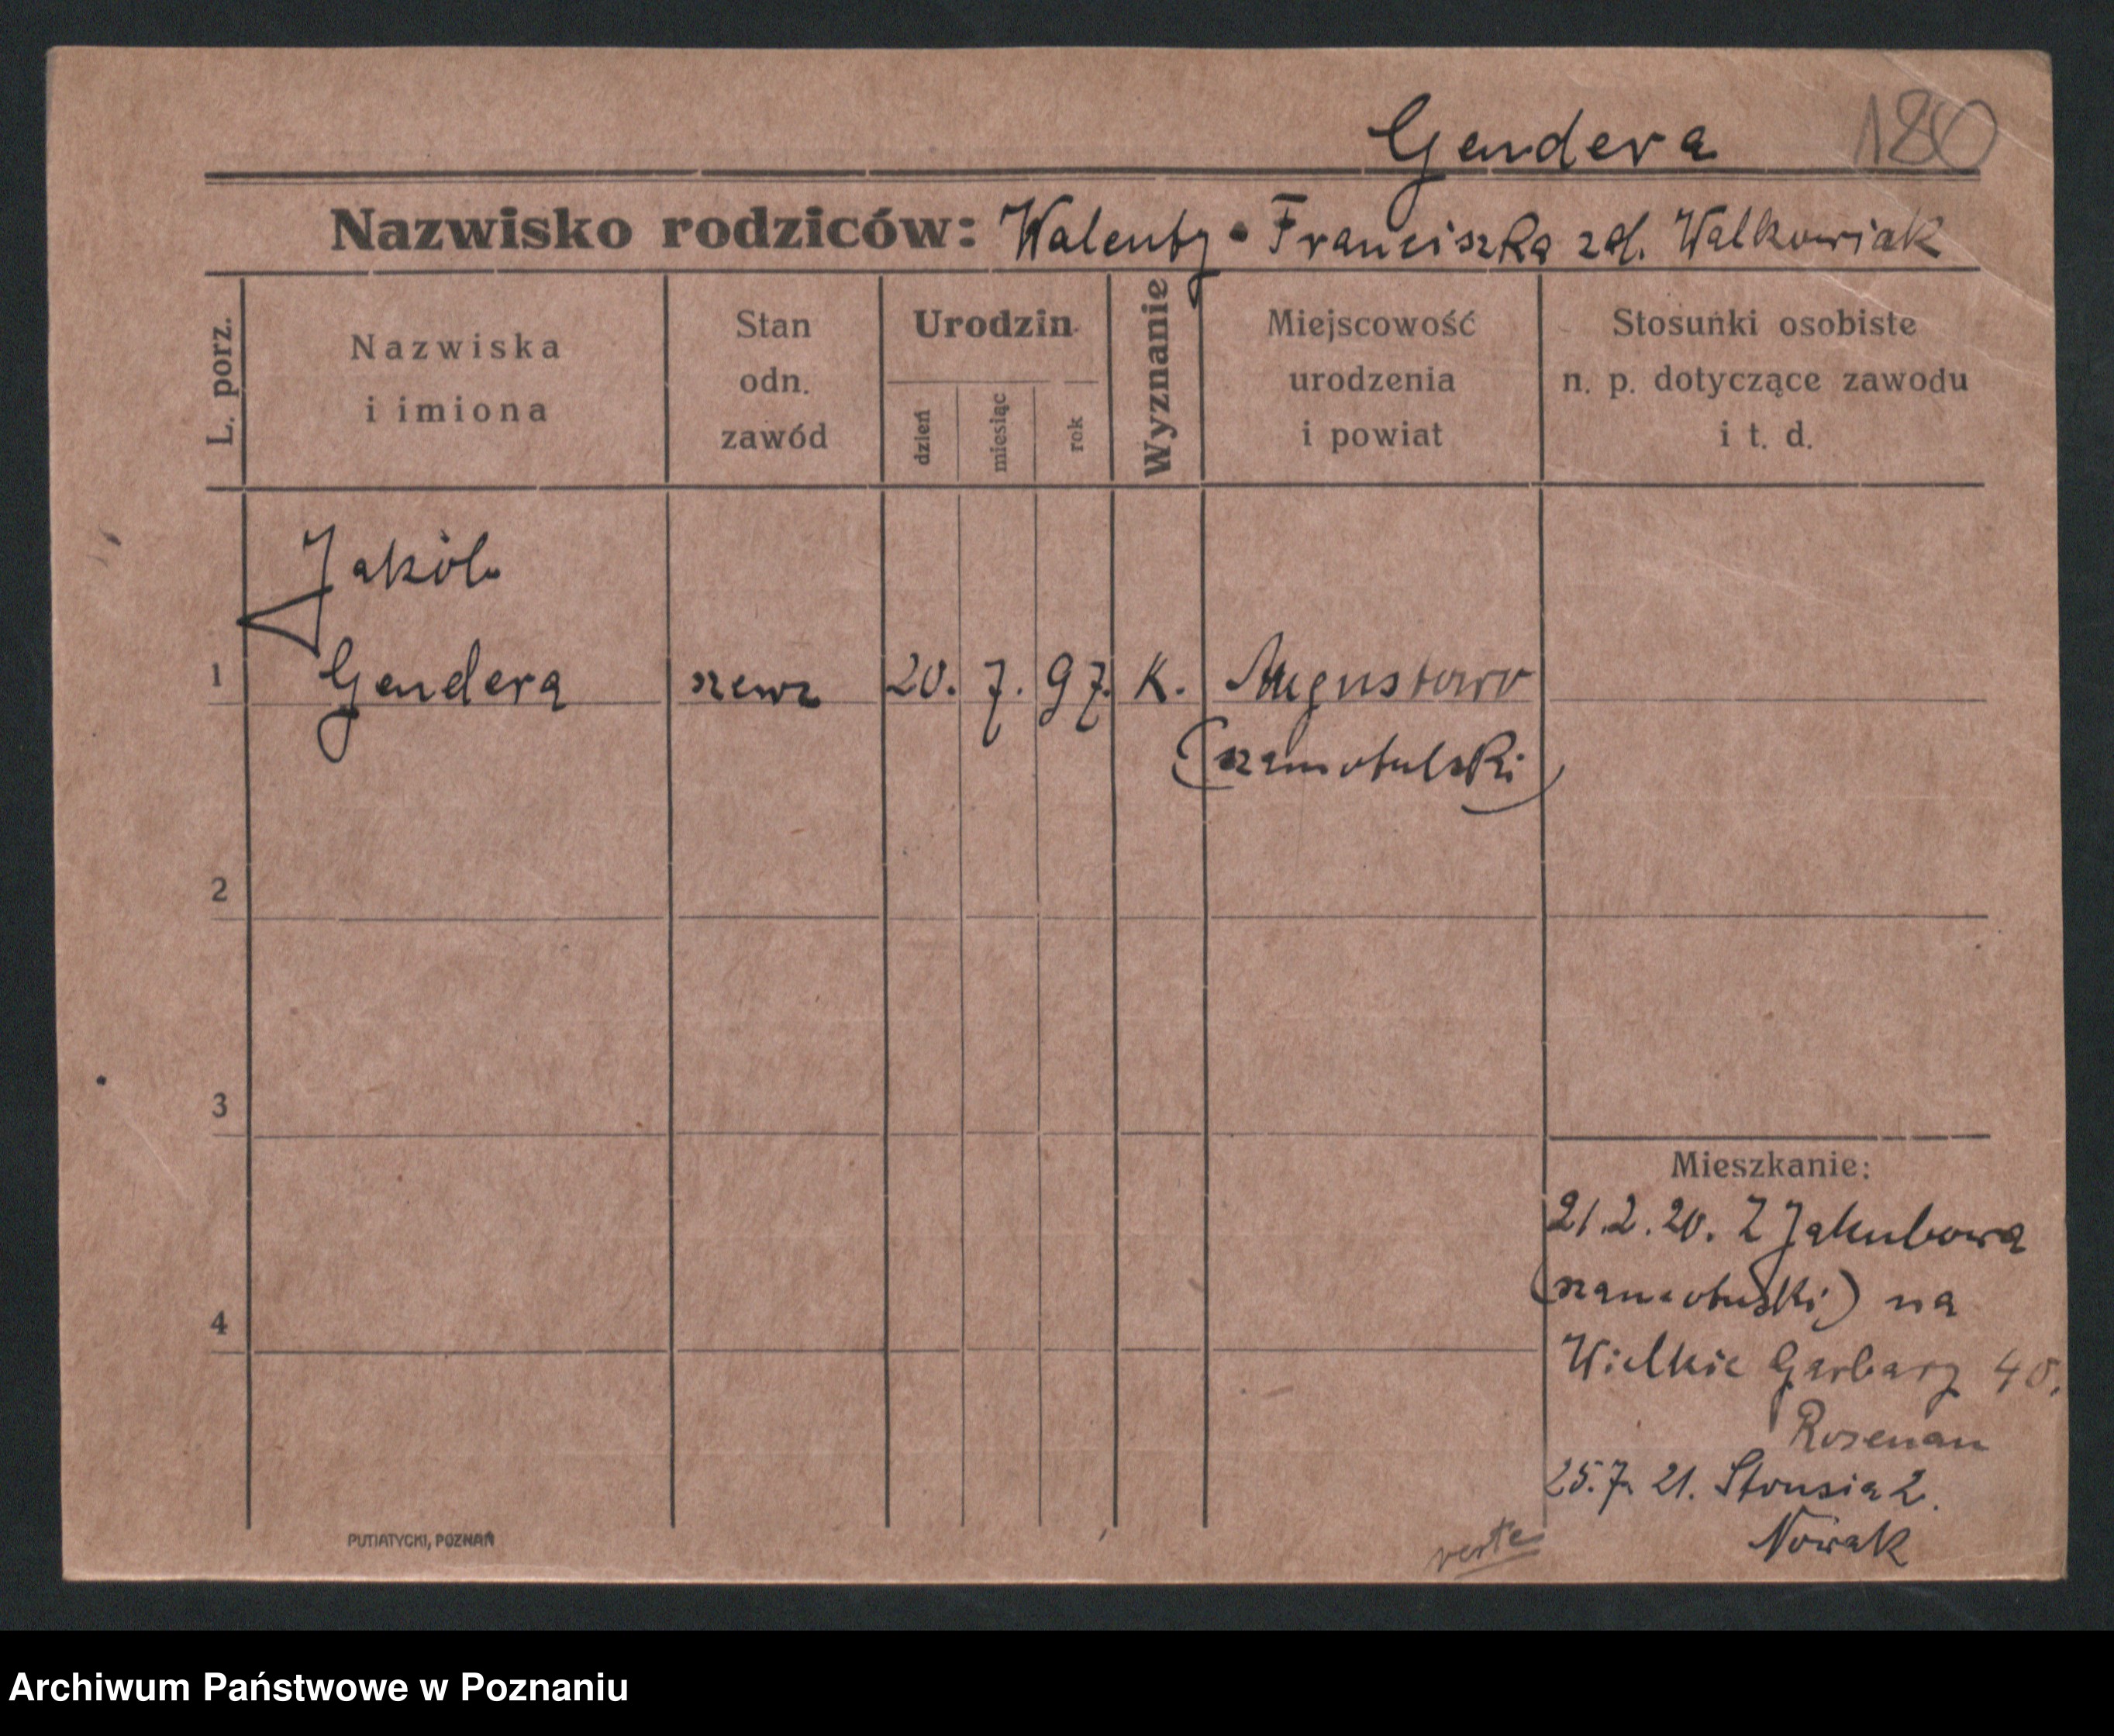 Gendera 180
Nazwisko rodziców: Walenty - Franciszka zd. Walkowiak
L. porz.
Nazwiska
i imiona
Stan
odn.
zawód
Urodzin
dzień
miesiąc
rok
Wyznanie
Miejscowość
urodzenia
i powiat
Stosunki osobiste
n. p. dotyczące zawodu
i t. d.
Jakób
1 Gendera szewc 20. 7. 97. K. Augustowo
(szamotulski)
2
3
4
Mieszkanie:
21.2.20. Z Jakubowa
(szamotulski) na
Wielkie Garbary 40.
Rosenau
25.7.21. Strusia 2.
Nowak
verte
PUTIATYCKI, POZNAŃ
Archiwum Państwowe w Poznaniu